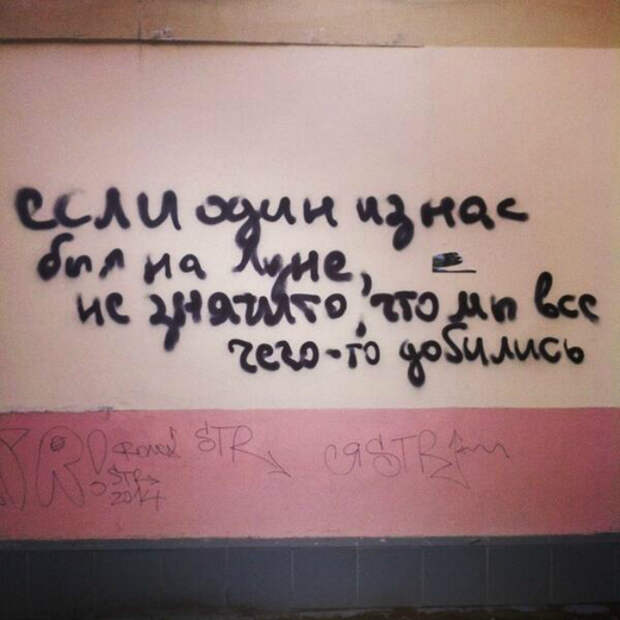 если один из нас
был на Луне,
не значит то, что мы все
чего-то добились
STR
STR
2014